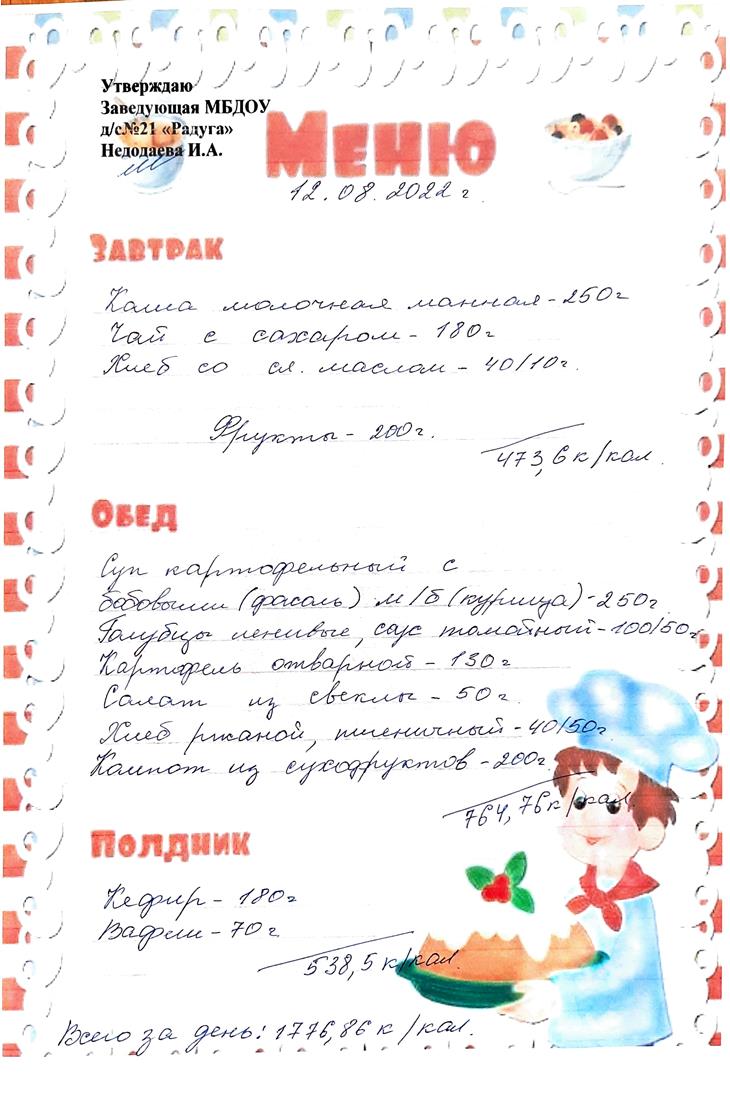 Утверждаю
Заведующая МБДОУ
д/с№21 «Радуга»
Недодаева И.А.
Меню
12.08.2022 г.
Завтрак
Каша молочная манная - 250г
Чай с сахаром - 180г
Хлеб со сл. маслом - 40/10г.
Фрукты - 200г.
473,6 к/кал.
Обед
Суп картофельный с
бобовыми (фасоль) м/б (курица) - 250г
Голубцы ленивые, соус томатный - 100/50г
Картофель отварной - 130г
Салат из свеклы - 50г.
Хлеб ржаной, пшеничный - 40/50г
Компот из сухофруктов - 200г.
764,76 к/кал.
Полдник
Кефир - 180г
Вафли - 70г
538,5 к/кал.
Всего за день: 1776,86 к/кал.